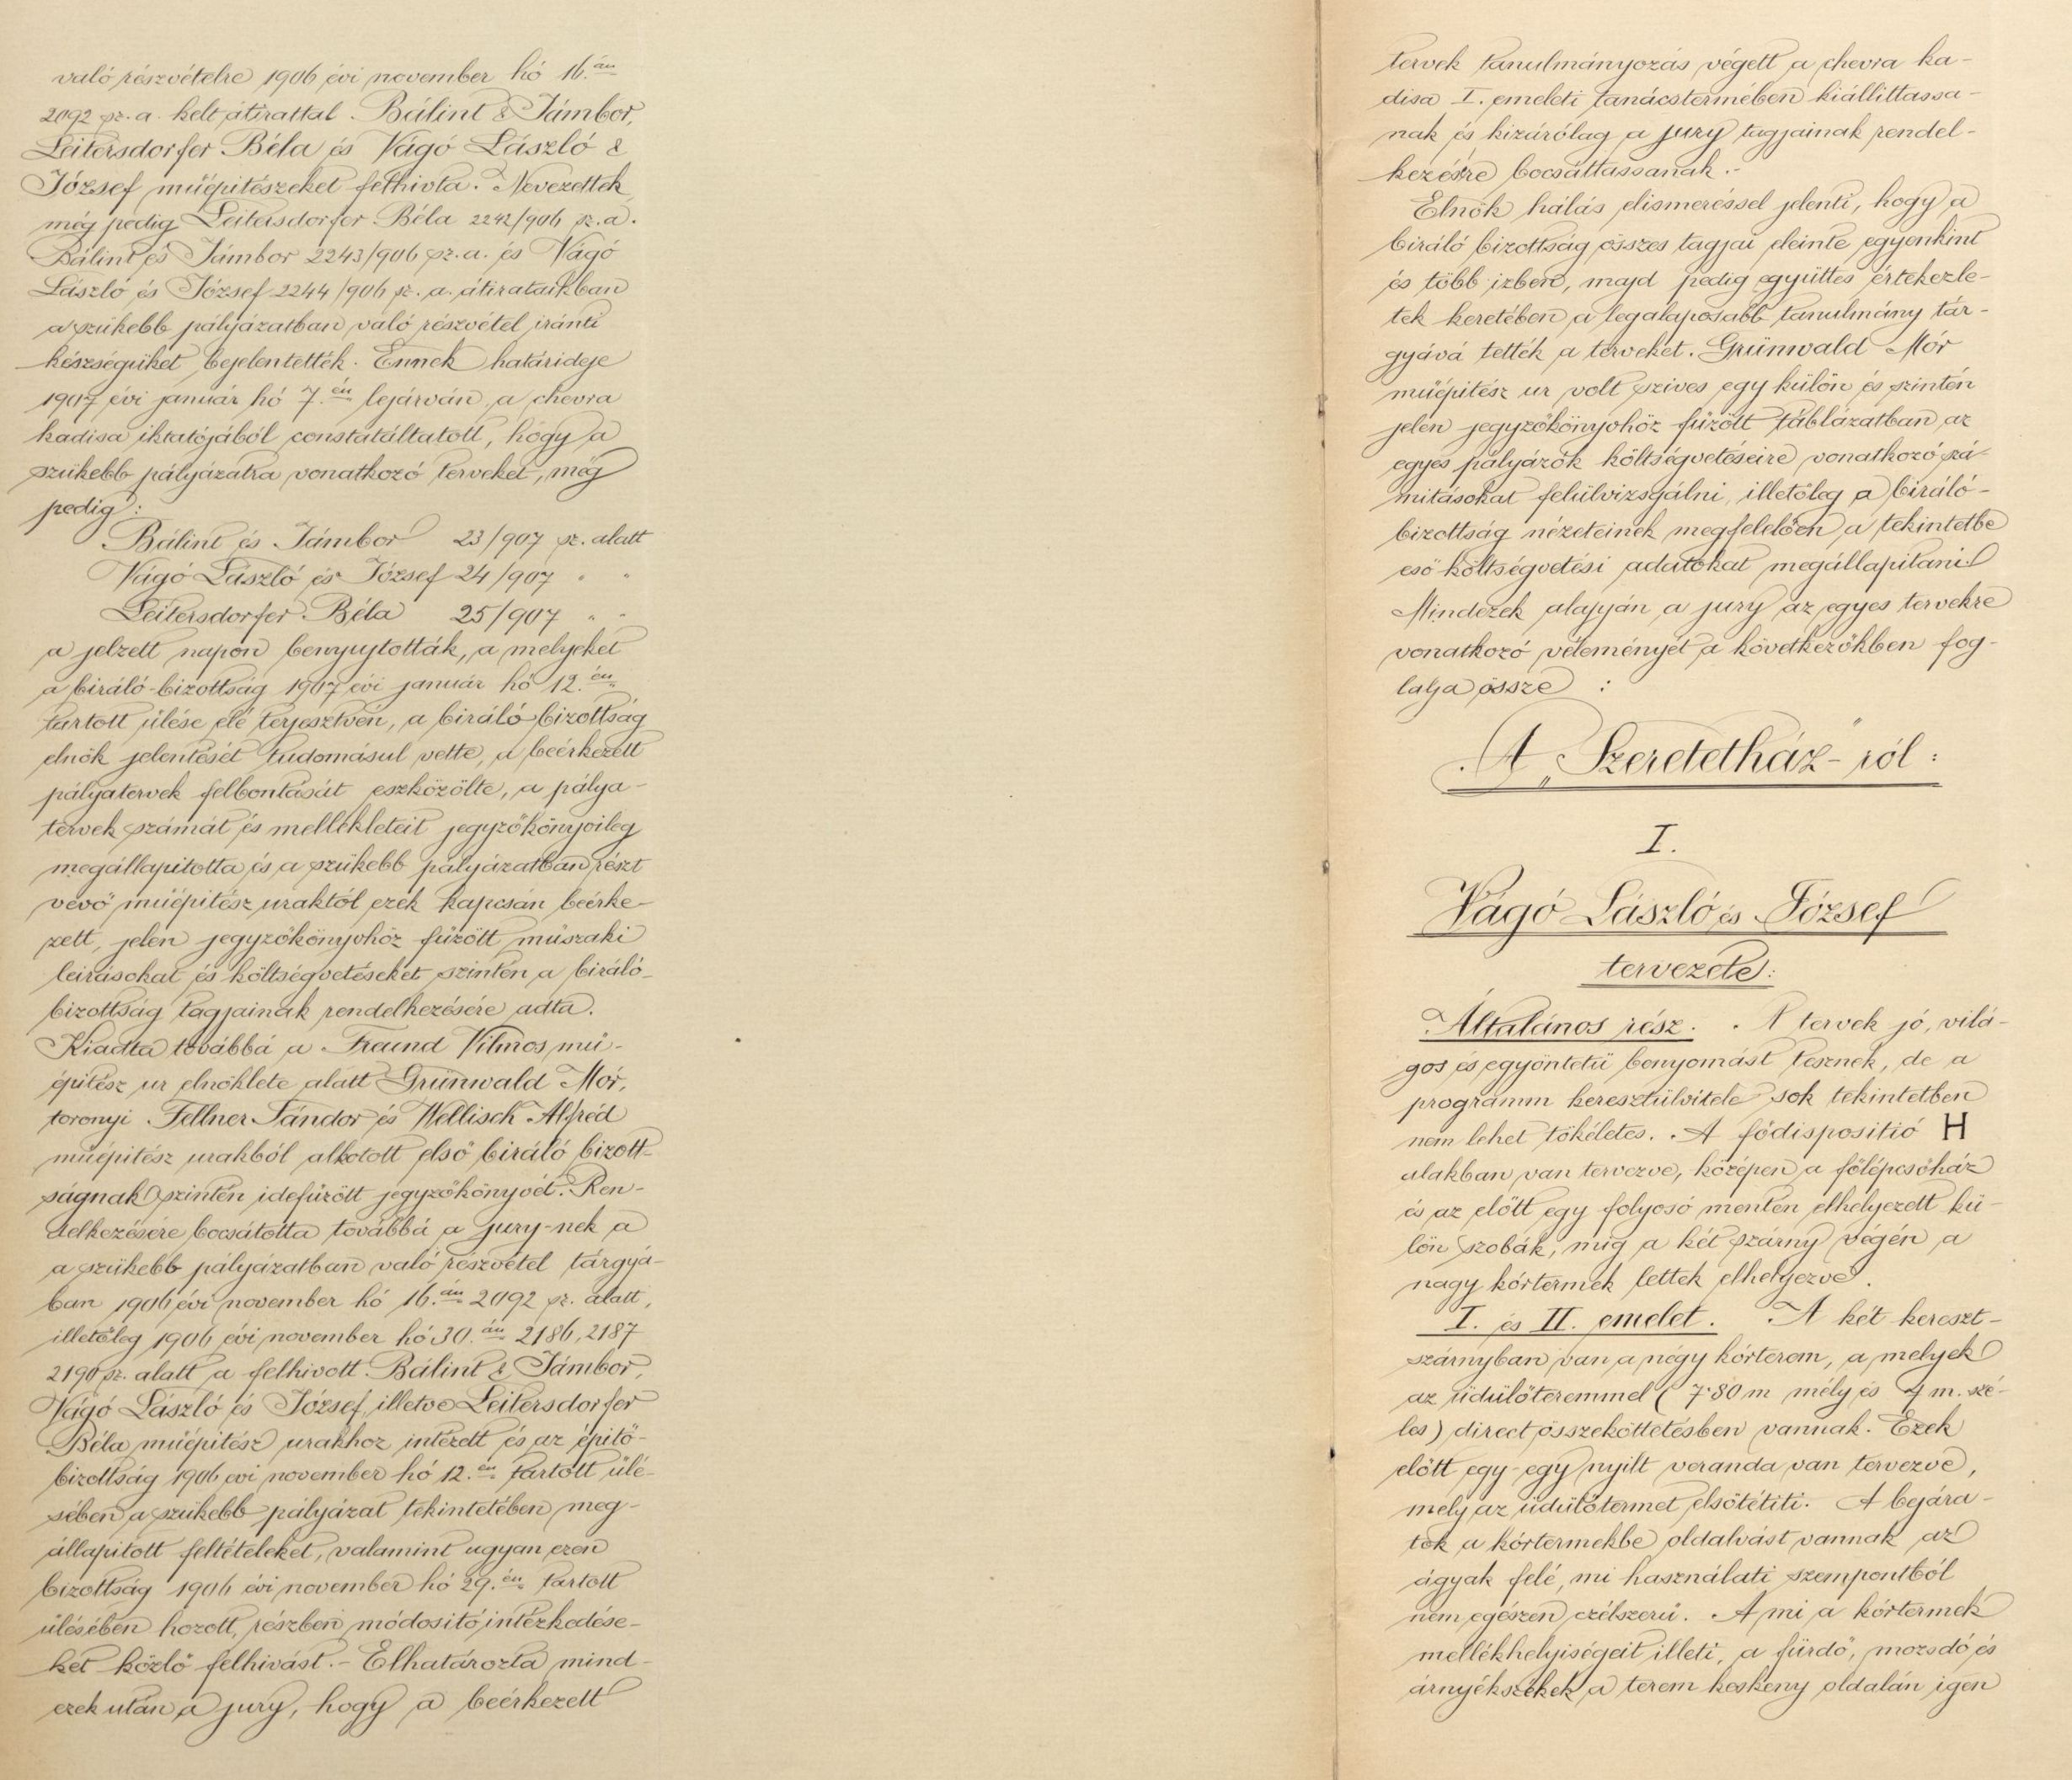 való részvételre 1906 évi november hó 16.án
2092 sz. a. kelt átirattal Bálint & Jámbor,
Leitersdorfer Béla és Vágó László &
József műépitészeket felhivta. Nevezettek
még pedig Leitersdorfer Béla 2242/906 sz. a.
Bálint és Jámbor 2243/906 sz. a. és Vágó
László és József 2244/906 sz. a. átirataikban
a szükebb pályázatban való részvétel iránti
készségüket bejelentették. Ennek határideje
1907 évi január hó 7.én lejárván, a chevra
kadisa iktatójából constatáltatott, hogy a
szükebb pályázatra vonatkozó terveket, még
pedig:
Bálint és Jámbor 23/907 sz. alatt
Vágó László és József 24/907 " "
Leitersdorfer Béla 25/907 " "
a jelzett napon benyujtották, a melyeket
a biráló-bizottság 1907 évi január hó 12.én
tartott ülése elé terjesztvén, a biráló bizottság
elnök jelentését tudomásul vette, a beérkezett
pályatervek felbontását eszközölte, a pálya-
tervek számát és mellékleteit jegyzőkönyvileg
megállapitotta és a szükebb pályázatban részt
vevő műépitész uraktól ezek kapcsán beérke-
zett, jelen jegyzőkönyvhöz füzött műszaki
leirásokat és költségvetéseket szintén a biráló-
bizottság tagjainak rendelkezésére adta.
Kiadta továbbá a Freund Vilmos mű-
épitész ur elnöklete alatt Grünwald Mór,
toronyi Fellner Sándor és Wellisch Alfréd
műépitész urakból alkotott első biráló bizott-
ságnak szintén idefüzött jegyzőkönyvét. Ren-
delkezésére bocsátotta továbbá a jury-nek a
a szükebb pályázatban való részvétel tárgyá-
ban 1906 évi november hó 16.án 2092 sz. alatt,
illetőleg 1906 évi november hó 30.án 2186, 2187
2190 sz. alatt a felhivott Bálint & Jámbor,
Vágó László és József, illetve Leitersdorfer
Béla műépitész urakhoz intézett és az épitő-
bizottság 1906 évi november hó 12.én tartott ülé-
sében a szükebb pályázat tekintetében meg-
állapitott feltételeket, valamint ugyan ezen
bizottság 1906 évi november hó 29.én tartott
ülésében hozott, részben módositó intézkedése-
ket közlő felhivást.- Elhatározta mind-
ezek után a jury, hogy a beérkezett
tervek tanulmányozás végett a chevra ka-
disa I. emeleti tanácstermében kiállittassa-
nak és kizárólag a jury tagjainak rendel-
kezésre bocsáttassanak.-
Elnök hálás elismeréssel jelenti, hogy a
biráló bizottság összes tagjai eleinte egyenkint
és több izben, majd pedig együttes értekezle-
tek keretében a legalaposabb tanulmány tár-
gyává tették a terveket. Grünwald Mór
műépitész ur volt szives egy külön és szintén
jelen jegyzőkönyvhöz füzött táblázatban az
egyes pályázók költségvetéseire vonatkozó szá-
mitásokat felülvizsgálni, illetőleg a biráló-
bizottság nézeteinek megfelelően a tekintetbe
eső költségvetési adatokat megállapitani
Mindezek alapján a jury az egyes tervekre
vonatkozó véleményét a következőkben fog-
lalja össze :
A „Szeretetház"-ról:
I.
Vágó László és József
tervezete:
Általános rész. A tervek jó, vilá-
gos és egyöntetü benyomást tesznek, de a
programm keresztülvitele sok tekintetben
nem lehet tökéletes. A fődispositió H
alakban van tervezve, középen a főlépcsőház
és az előtt egy folyosó mentén elhelyezett kü-
lön szobák, mig a két szárny végén a
nagy kórtermek lettek elhelyezve.
I. és II. emelet. A két kereszt-
szárnyban van a négy kórterem, a melyek
az üdülőteremmel ( 7·80 m mély és 7 m. szé-
les) direct összeköttetésben vannak. Ezek
előtt egy-egy nyilt veranda van tervezve,
mely az üdülőtermet elsötétiti. A bejára-
tok a kórtermekbe oldalvást vannak az
ágyak felé, mi használati szempontból
nem egészen czélszerü. A mi a kórtermek
mellékhelyiségeit illeti, a fürdő, mozsdó és
árnyékszékek a terem keskeny oldalán igen